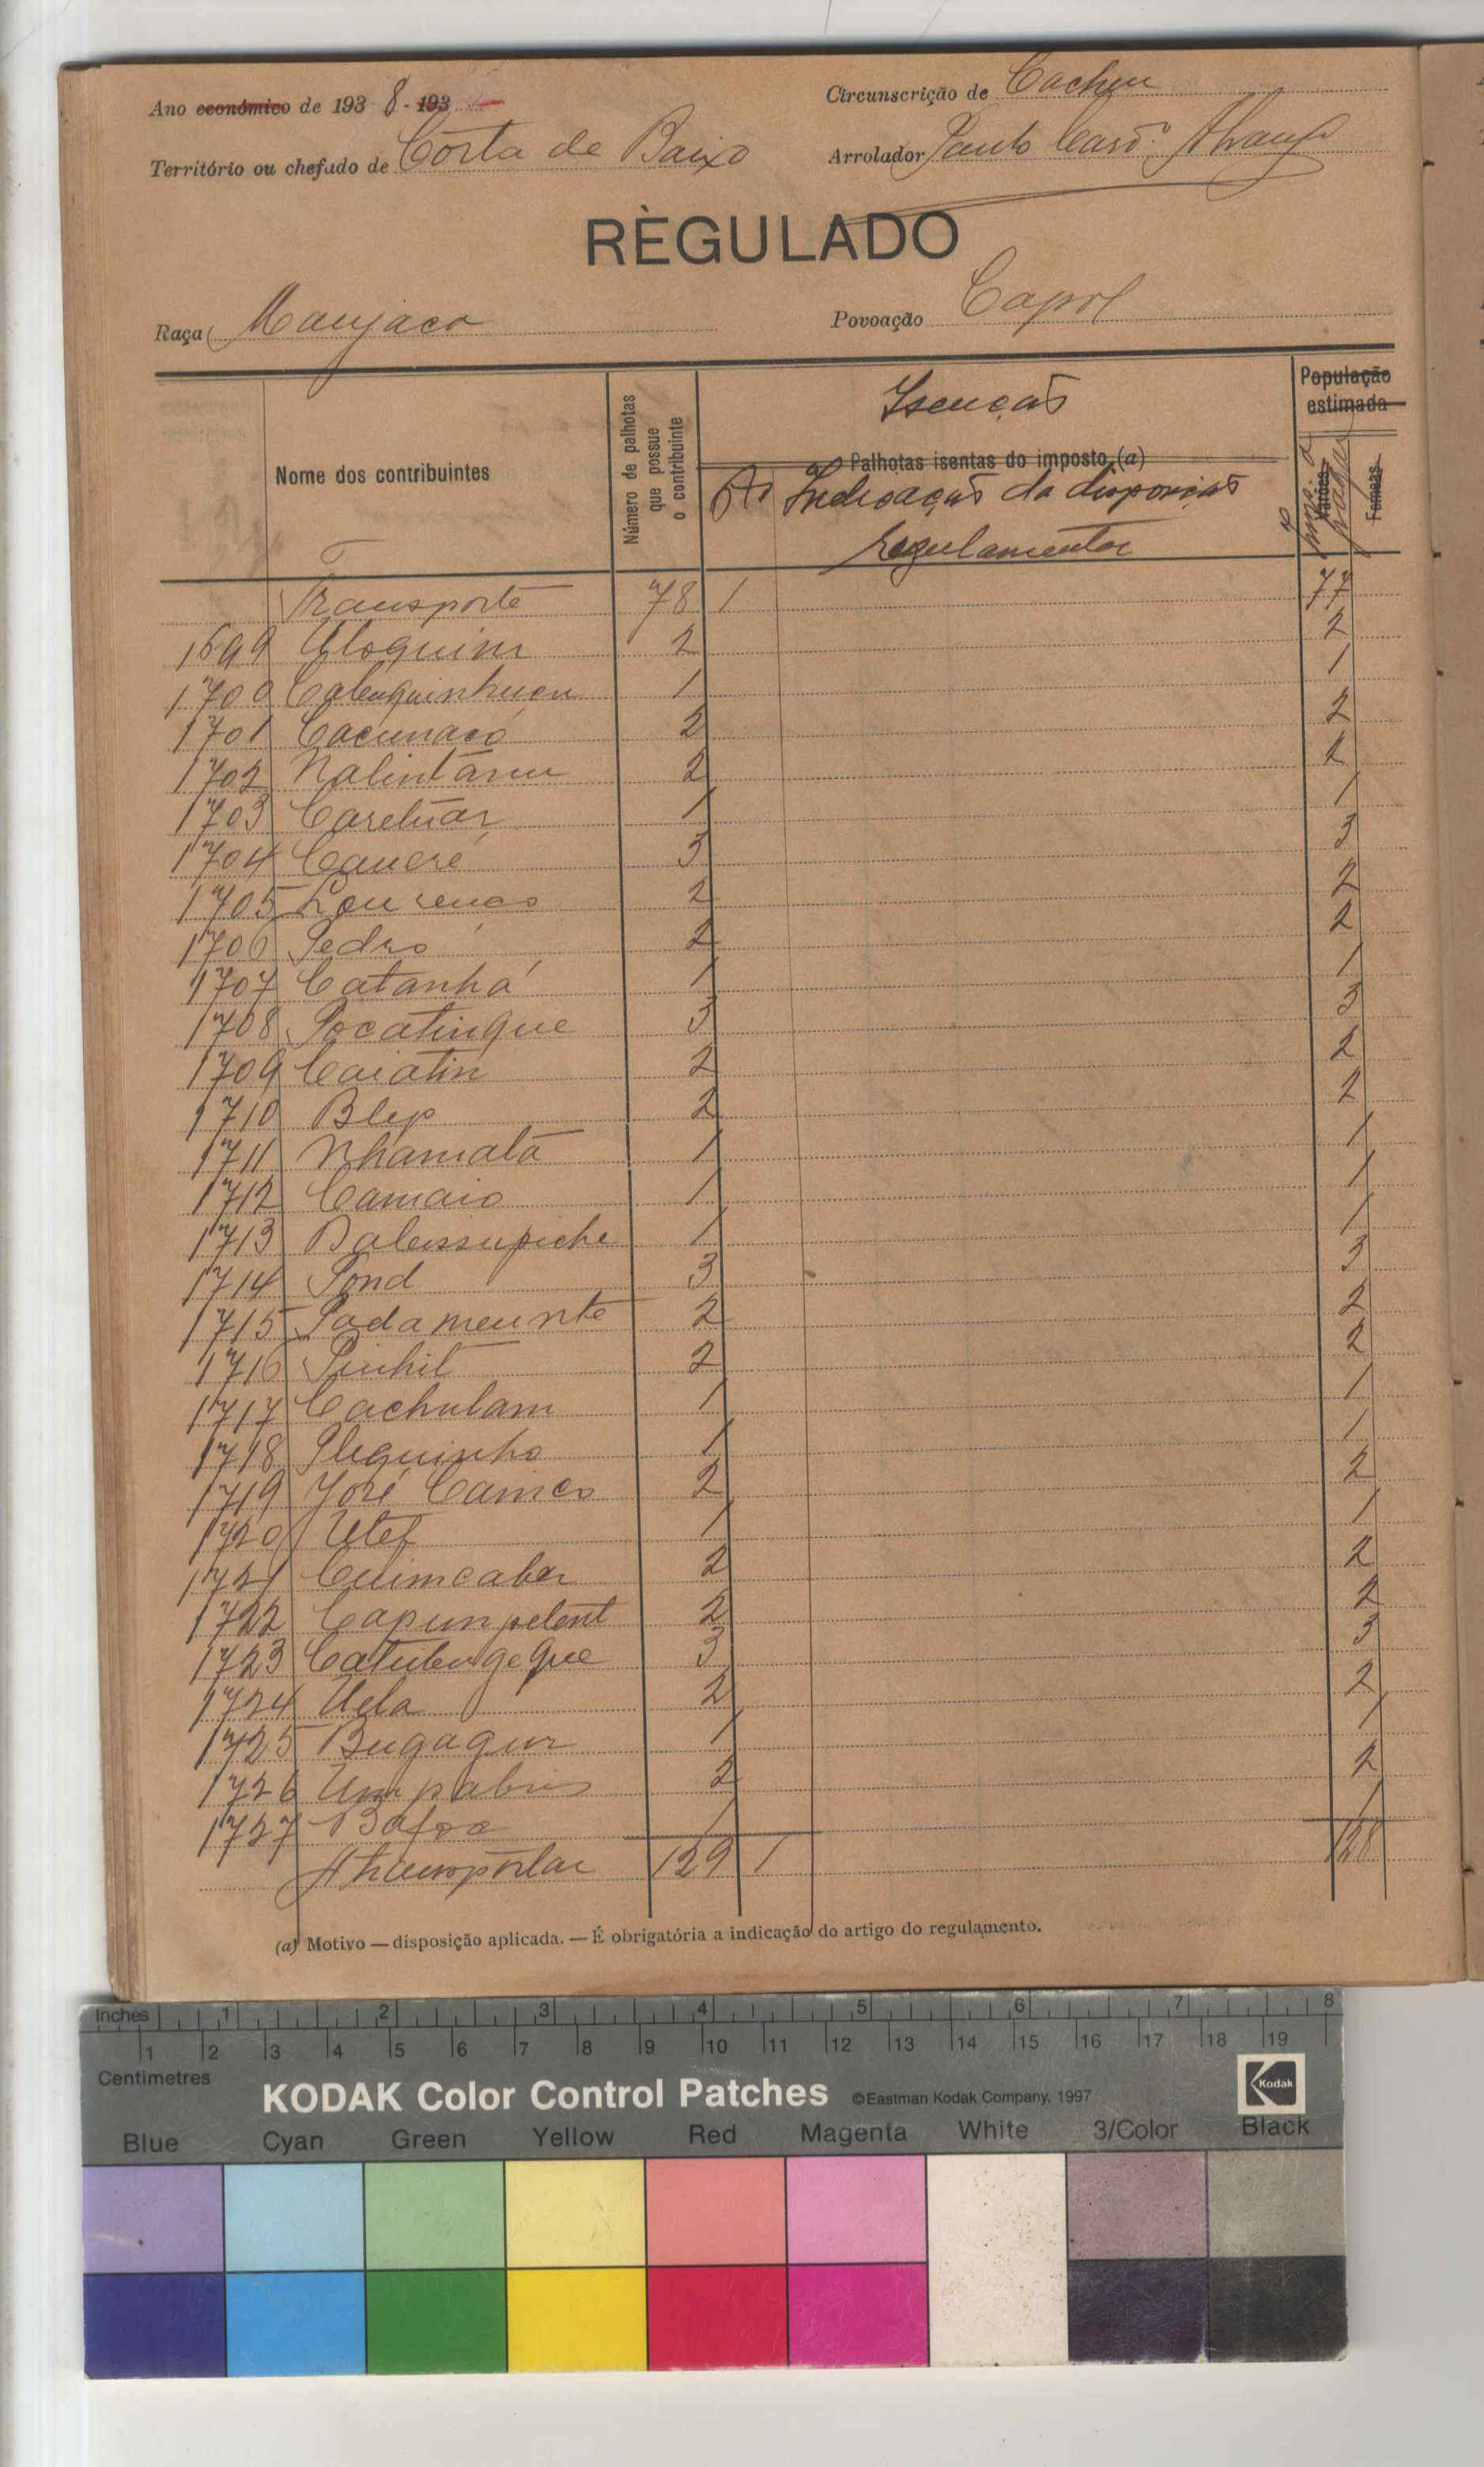 Ano económico de 193 8 - 193
Circunscrição de Cacheu
Território ou chefado de Costa de Baixo
Arrolador Paulo
RÈGULADO
Raça Manjaco
Povoação Capol
Nome dos contribuintes
Número de palhotas que possue o contribuinte
Isenções
Palhotas isentas do imposto (a)
Indicação da disposição
regulamentar
População estimada
Varões
Femeas
Transporte 78 1 77
1699 Uloquim 2 2
1700 1 1
1701 Cacunacó 2 2
1702 Nalintam 2 2
1703 Caretuar 1 1
1704 Caueré 3 3
1705 Lourenço 2 2
1706 Pedro 2 2
1707 Catanhá 1 1
1708 Pocatinque 3 3
1709 Caiatin 2 2
1710 Blep 2 2
1711 Nhamatá 1 1
1712 Camaio 1 1
1713 1 1
1714 Pond 3 3
1715 Padameunte 2 2
1716 Pinhit 2 2
1717 Cachulam 1 1
1718 Plequinho 1 1
1719 José Camico 2 2
1720 Utef 1 1
1721 Cuimcaber 2 2
1722 2 2
1723 Catubengeque 3 3
1724 Uela 2 2
1725 Bugagur 1 1
1726 Umpabus 2 2
1727 Bafoa 1 1
A transportar 129 1 128
(a) Motivo — disposição aplicada. — É obrigatória a indicação do artigo do regulamento.
Inches 1 2 3 4 5 6 7 8
1 2 3 4 5 6 7 8 9 10 11 12 13 14 15 16 17 18 19
Centimetres
KODAK Color Control Patches ©Eastman Kodak Company, 1997 Kodak
Blue Cyan Green Yellow Red Magenta White 3/Color Black